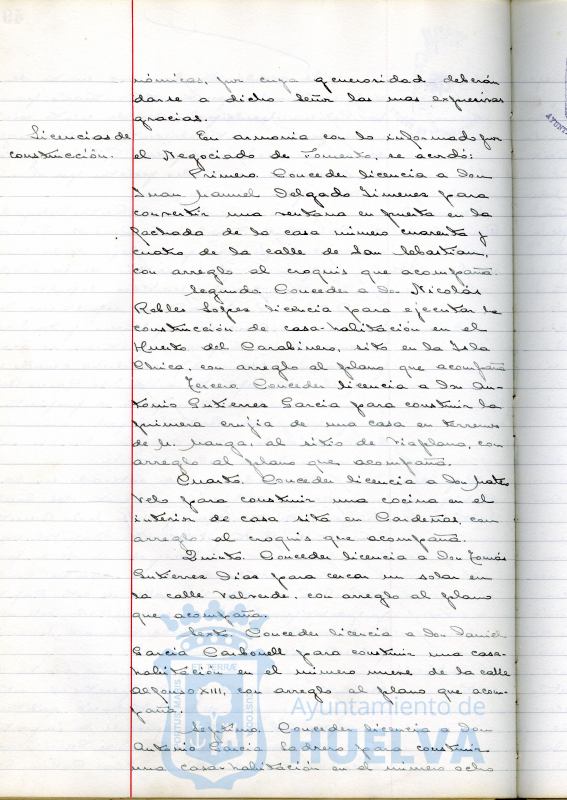 nómicas, por cuya generosidad deberán
darse a dicho señor las mas expresivas
gracias.
Licencias de
construcción.
En armonia con lo informado por
el Negociado de Fomento, se acordó:
Primero. Conceder licencia a Don
Juan Manuel Delgado Jimenez para
convertir una ventana en puerta en la
fachada de la casa número cuarenta y
cuatro de la calle de San Sebastian,
con arreglo al croquis que acompaña.
Segundo. Conceder a Don Nicolás
Robles López licencia para ejecutar la
construcción de casa-habitación en el
Huerto del Carabinero, sito en la Isla
Chica, con arreglo al plano que acompaña
Tercero. Conceder licencia a Don An-
tonio Gutierrez Garcia para construir la
primera crujia de una casa en terrenos
de al sitio de Viaplana, con
arreglo al plano que acompaña.
Cuarto. Conceder licencia a Don Mateo
Velo para construir una cocina en el
interior de casa sita en Cardeñas, con
arreglo al croquis que acompaña.
Quinto. Conceder licencia a Don Tomás
Gutierrez Dias para cercar un solar en
la calle Valverde, con arreglo al plano
que acompaña.
Sexto. Conceder licencia a Don Daniel
Garcia Carbonell para construir una casa-
habitación en el número nueve de la calle
Alfonso XIII, con arreglo al plano que acom-
paña.
Septimo. Conceder licencia a Don
Antonio Garcia Ladrero para construir
una casa-habitación en el número ocho
Ayuntamiento de
HUELVA